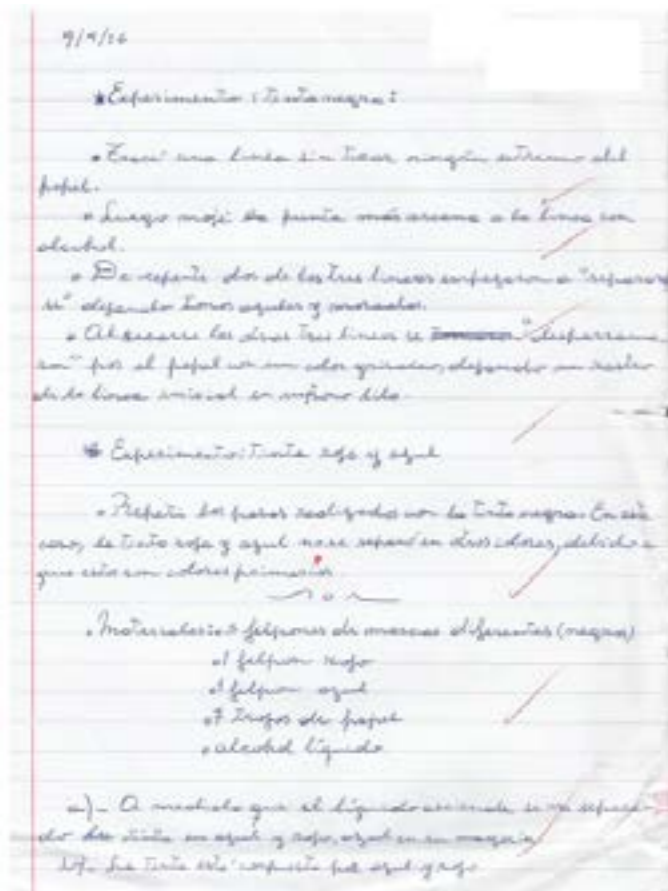 9/4/16
* Experimento: tinta negra:
• Tracé una linea sin tocar ningún extremo del
papel.
• Luego mojé la punta más cercana a la linea con
alcohol.
• De repente dos de las tres lineas empezaron a "separar
se" dejando tonos azules y morados.
• Al secarse las tres lineas se "desparrama
ron" por el papel con un color grisáceo, dejando un
de la linea inicial en
* Experimento: tinta roja y azul
• Repetí los pasos realizados con la tinta negra. En este
caso, la tinta roja y azul no se separó en colores, debido a
que estos son colores primarios
• Materiales: 3 felpones de marcas diferentes (negro)
•1 felpon rojo
•1 felpon azul
•7 trozos de papel
• alcohol líquido
a)- A medida que el líquido asciende se va separan
do la tinta en azul y rojo, azul en su mayoría
b)- La tinta está compuesta por azul y rojo